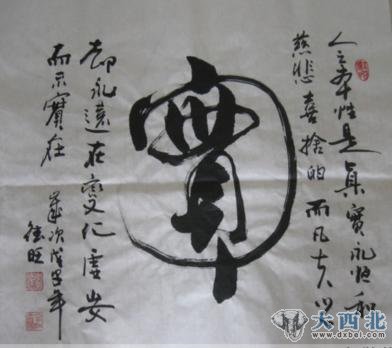 人之本性是真實永恒和
慈悲喜捨的 而凡夫心
實
却永遠在變化虛妄
而不實在
歲次 年
德旺
大西北
www.dxbei.com